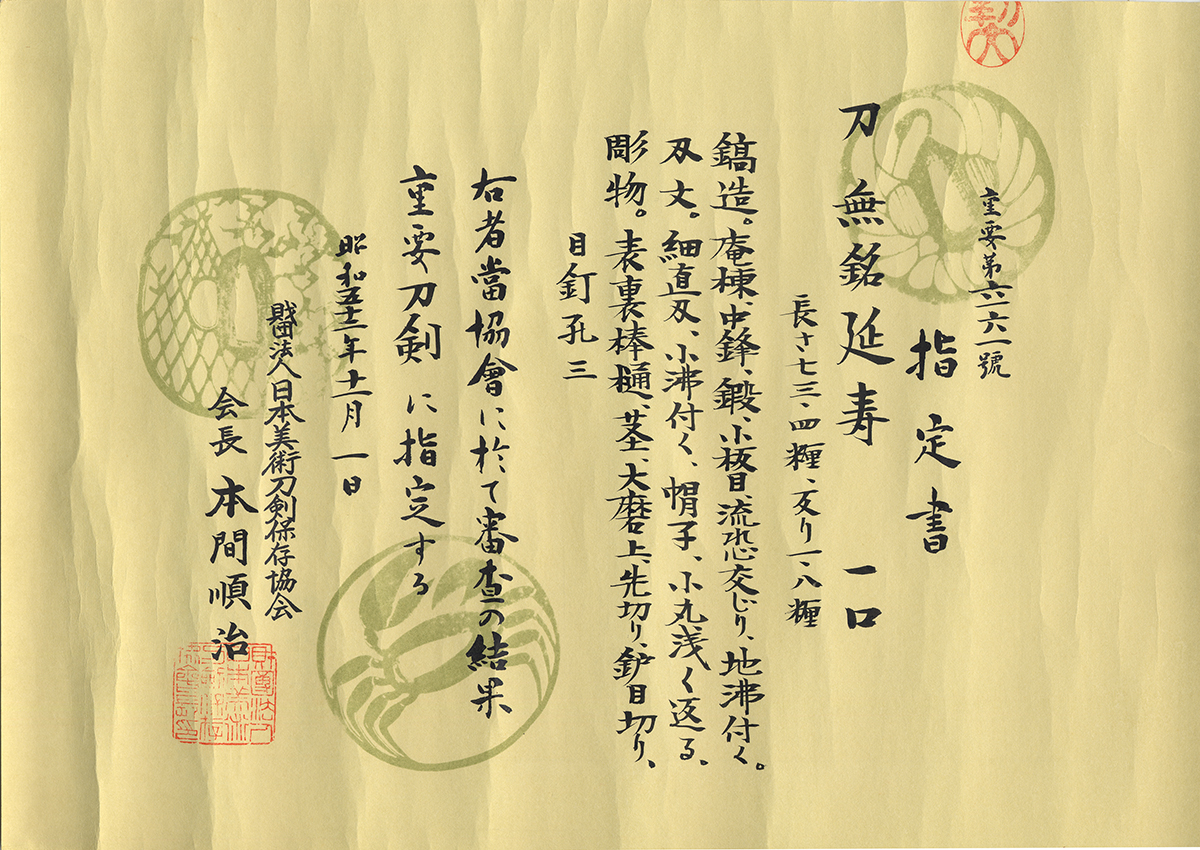 重要第六二六一號
指定書
刀 無銘延寿 一口
長サ七三、四糎、反り一、八糎
鎬造。庵棟、中鋒、鍛、小板目、流れ心交じり、地沸付く。
刃文。細直刃、小沸付く、帽子、小丸浅く返る、
彫物。表裏棒樋、茎、大磨上、先切り、鑢目切り、
目釘孔三
右者當協會に於て審査の結果
重要刀剣に指定する
昭和五十三年十一月一日
財団法人日本美術刀剣保存協会
会長 本間順治